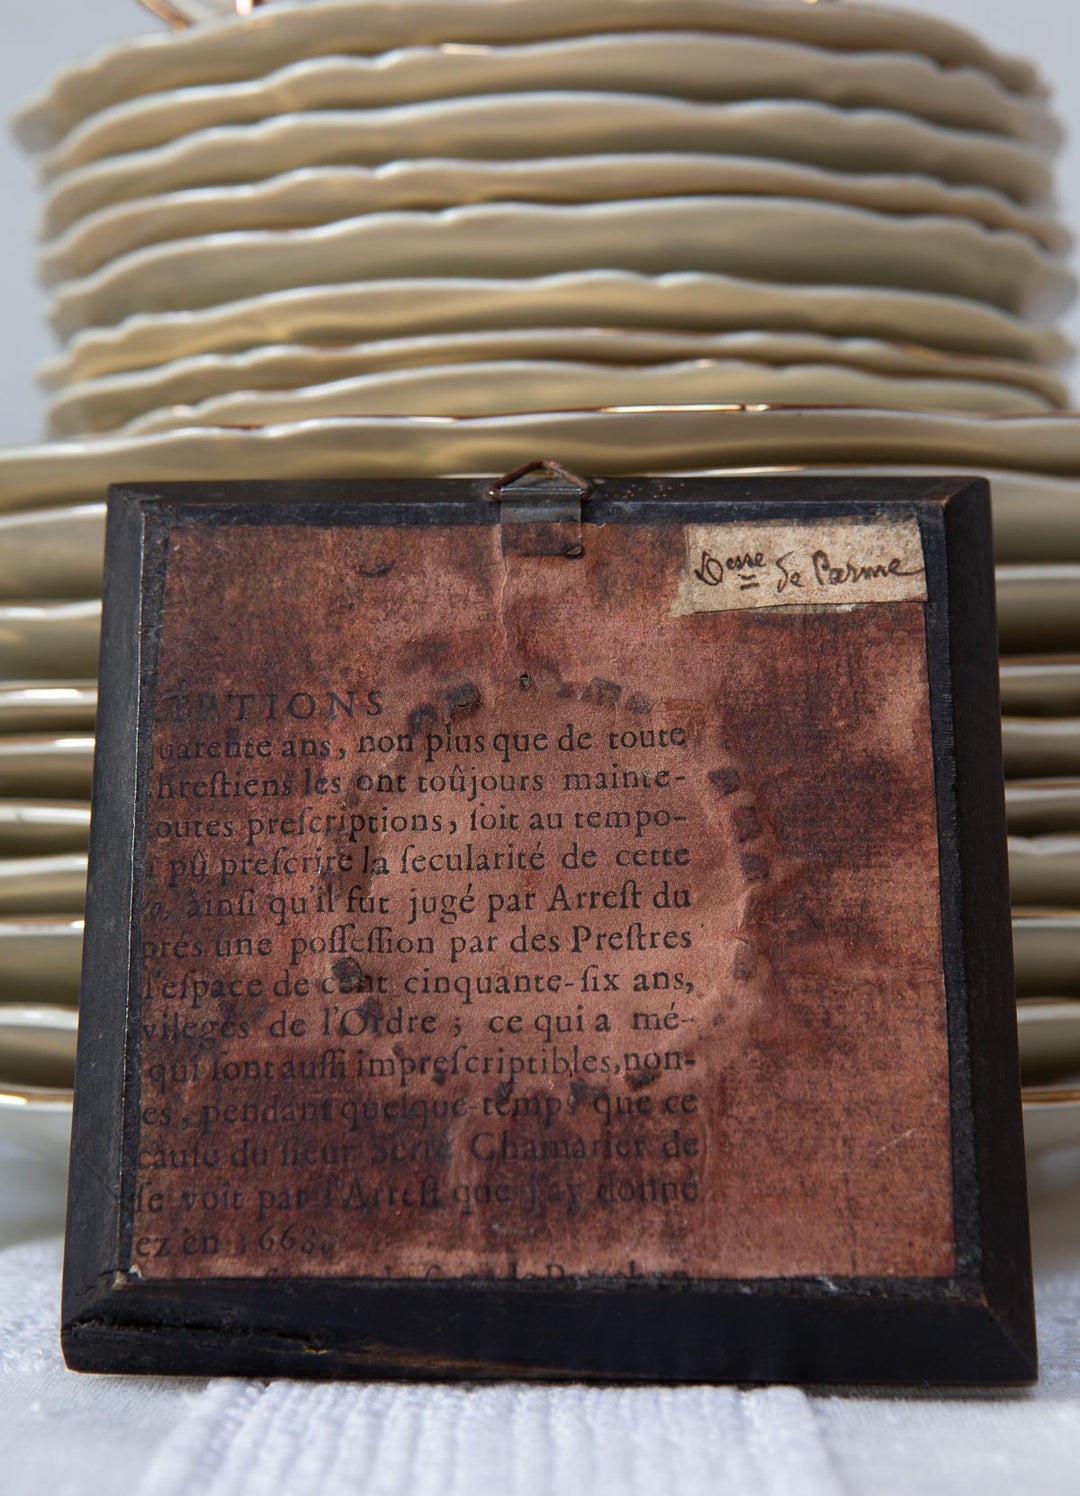 Desse de Parme
EPTIONS
uarente ans, non plus que de toute
hreſtiens les ont toûjours mainte-
outes preſcriptions, ſoit au tempo-
pû preſcrire la ſecularité de cette
ainſi qu'il fut jugé par Arreſt du
prés une poſſeſſion par des Preſtres
l'eſpace de cent cinquante-ſix ans,
vileges de l'Ordre ; ce qui a mé-
qui ſont auſſi impreſcriptibles, non-
es, pendant quelque-temps que ce
cauſe du ſieur Serre Chamarier de
ſe voit par l'Arreſt que j'ay donné
ez en 1663.